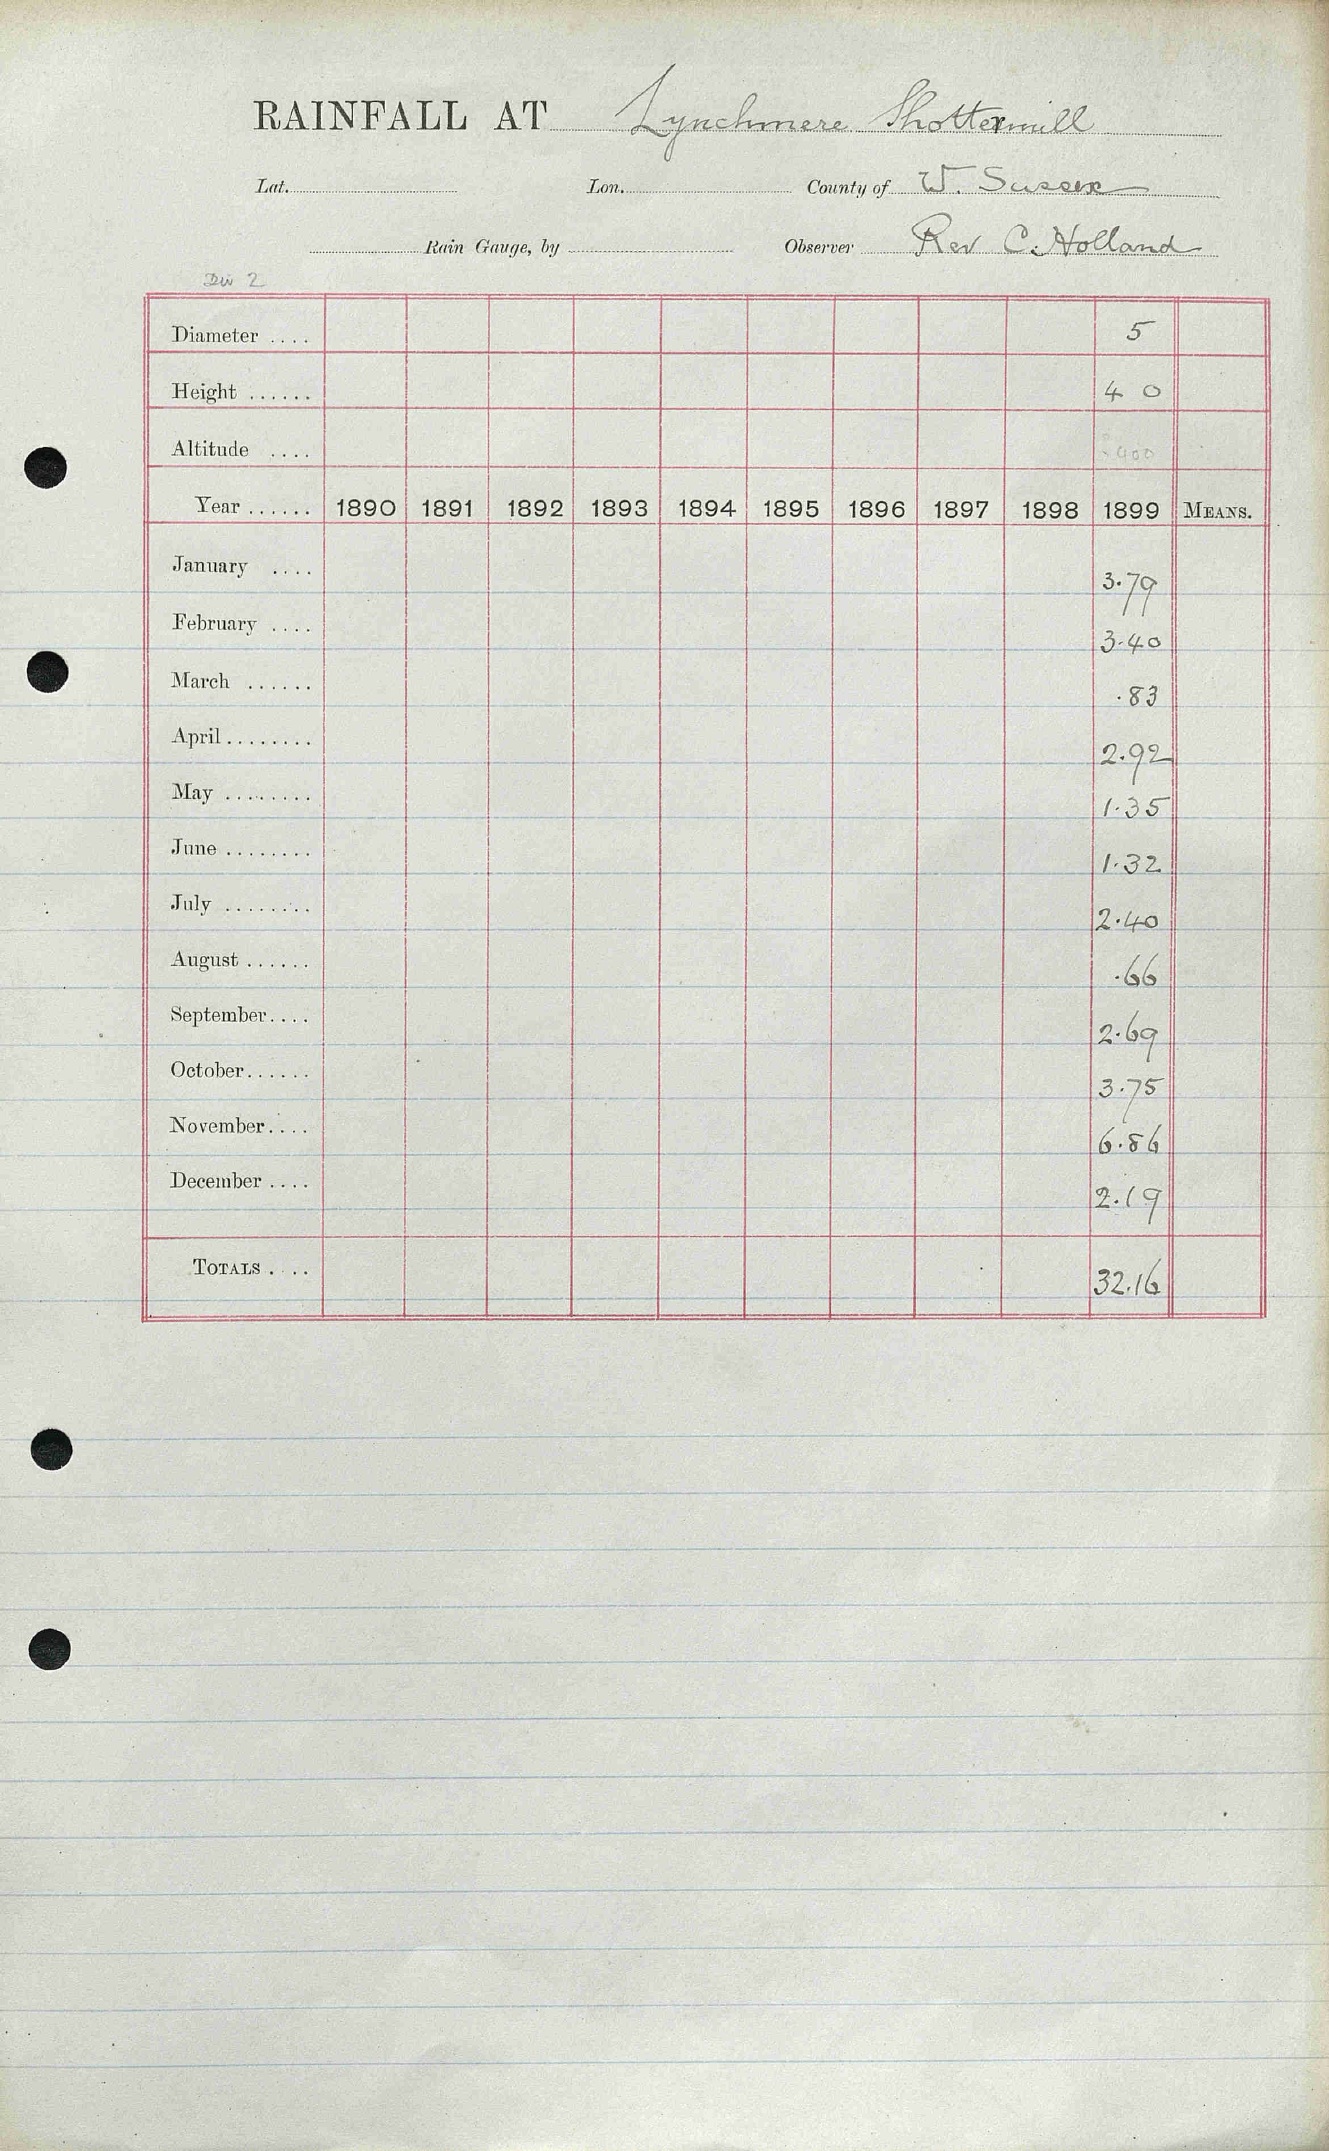 RAINFALL AT Lynchmere Shottermill
Lat. Lon. County of W. Sussex
Rain Gauge, by Observer Rev C. Holland
Div 2
Diameter .... 5
Height ...... 4 0
Altitude .... 400
Year ...... 1890 1891 1892 1893 1894 1895 1896 1897 1898 1899 MEANS.
January .... 3.79
February .... 3.40
March ...... .83
April ........ 2.92
May ........ 1.35
June ........ 1.32
July ........ 2.40
August ...... .66
September.... 2.69
October...... 3.75
November.... 6.86
December .... 2.19
TOTALS .... 32.16